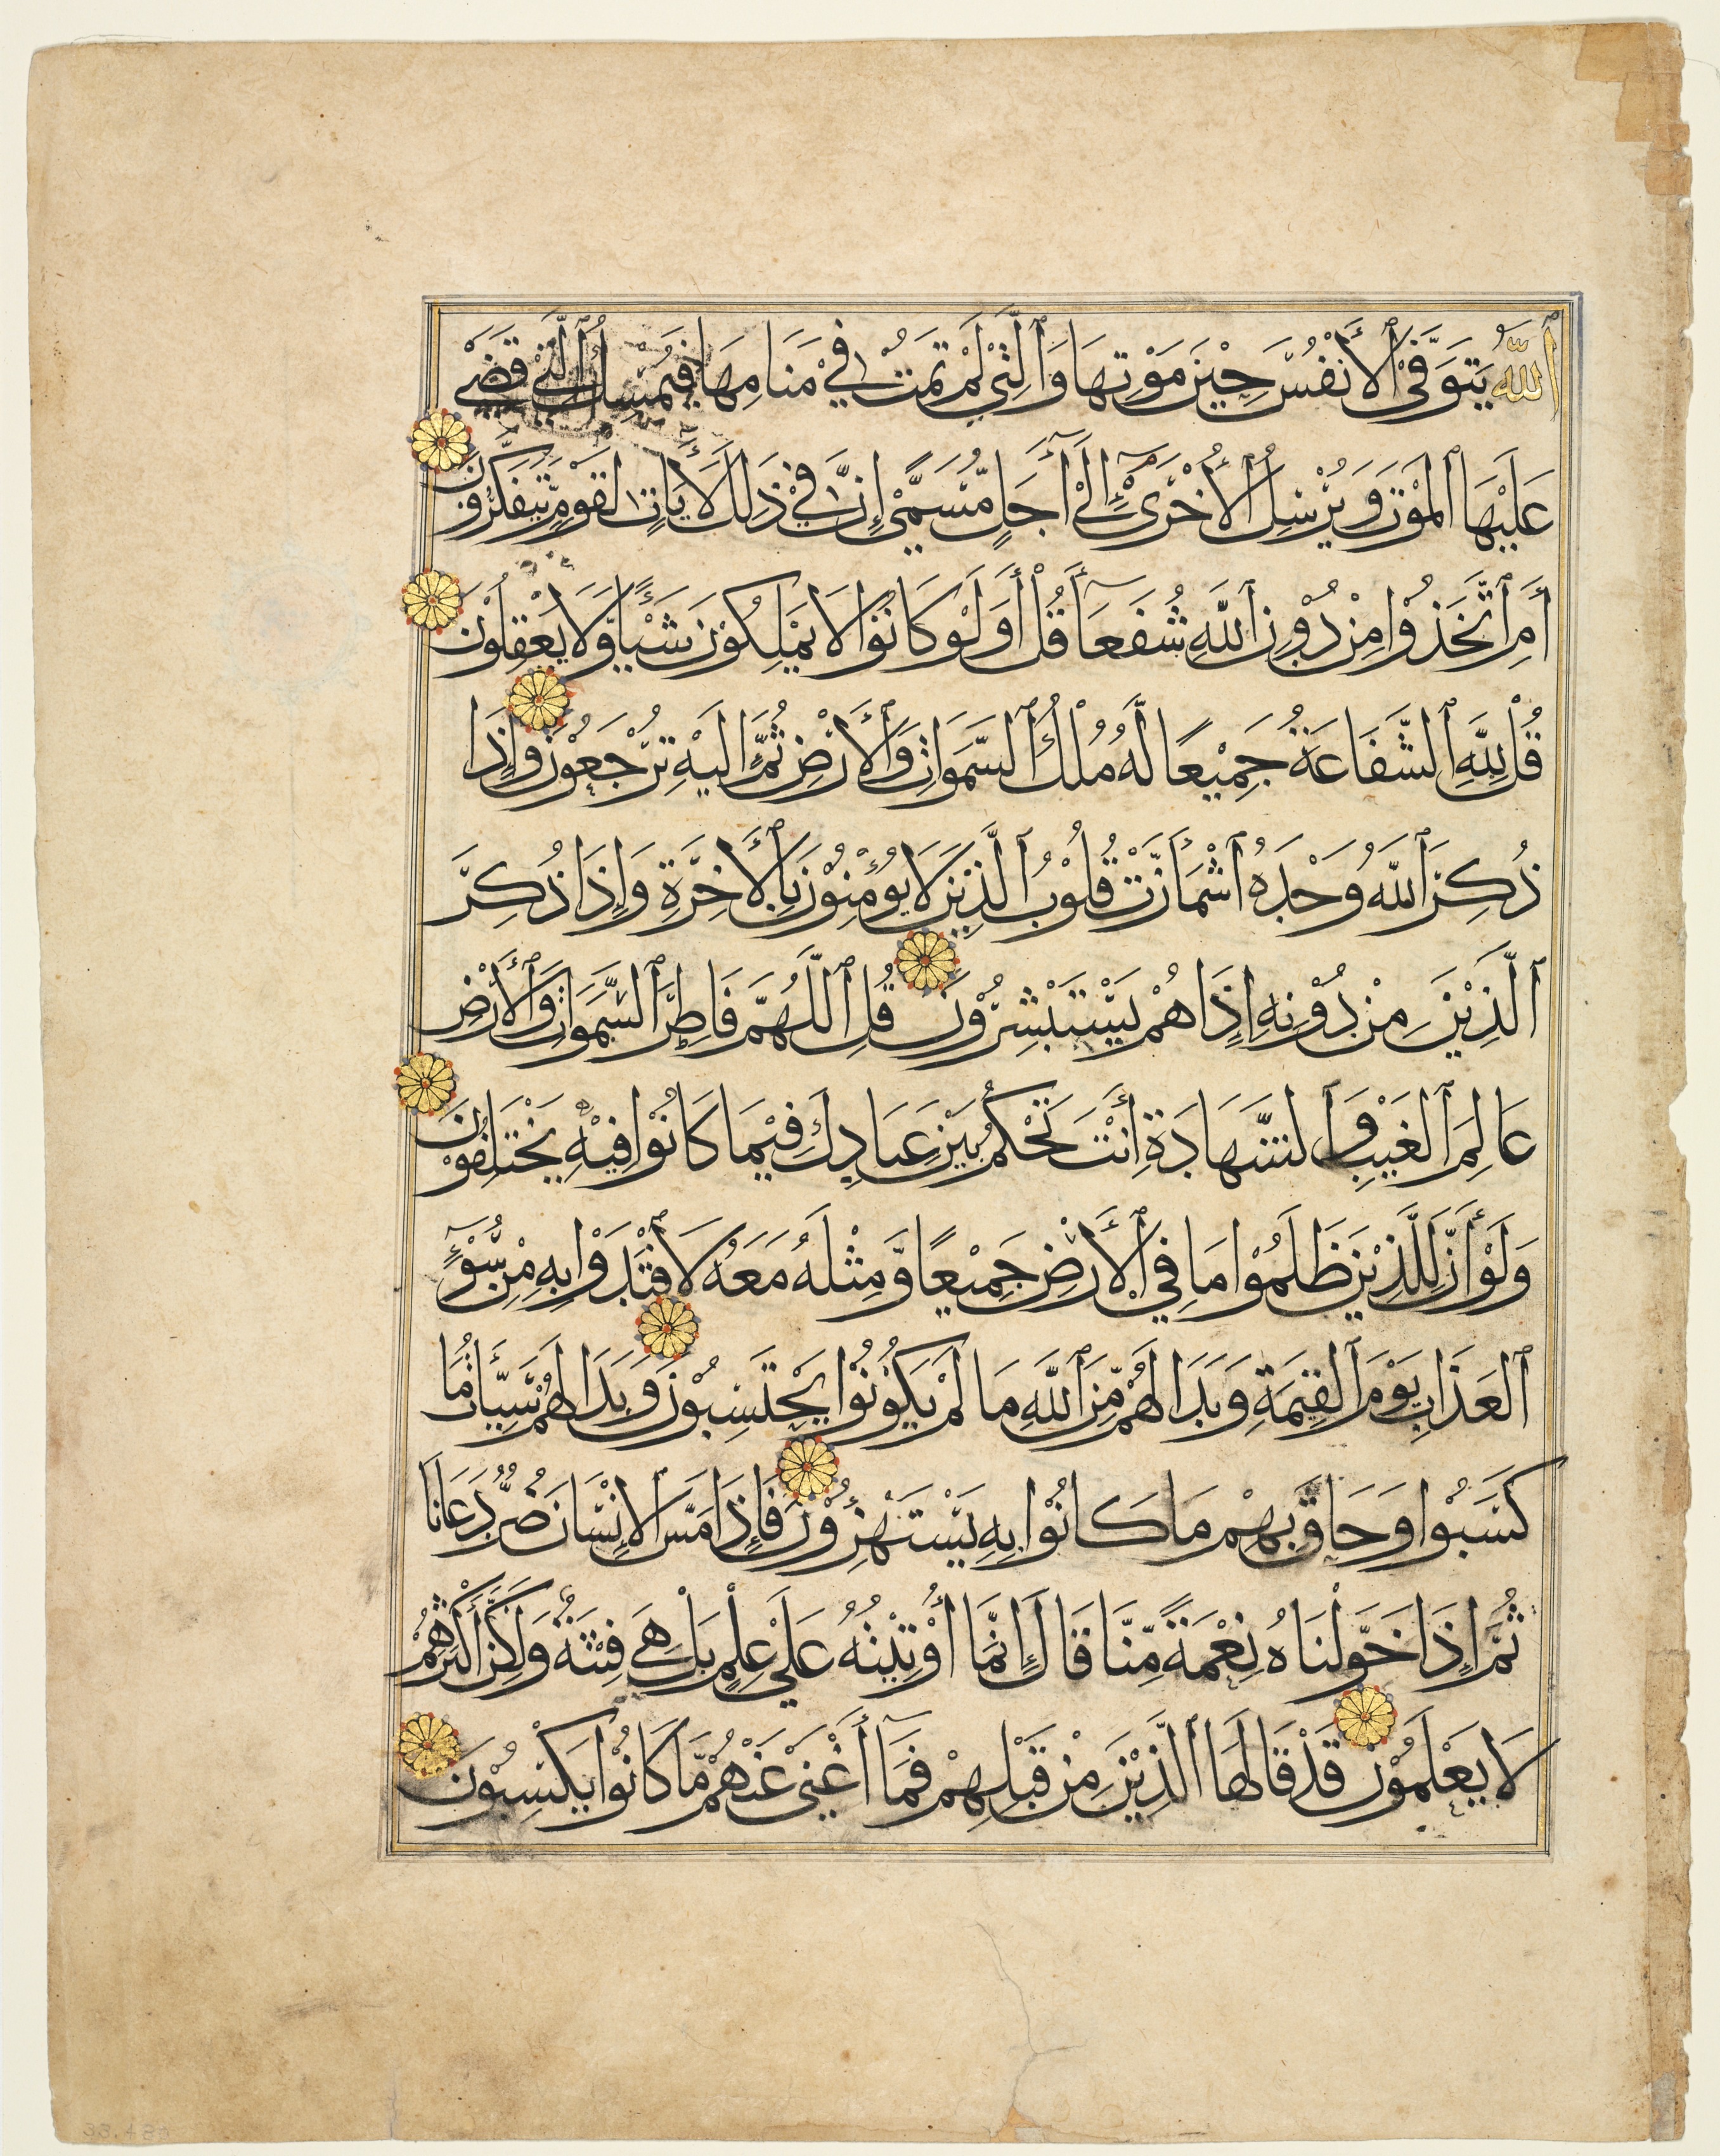 ٱللَّهُ يَتَوَفَّى ٱلْأَنْفُسَ حِيْنَ مَوْتِهَا وَٱلَّتِيْ لَمْ تَمُتْ فِيْ مَنَامِهَا فَيُمْسِكُ ٱلَّتِيْ قَضَىْ
عَلَيْهَا ٱلْمَوْتَ وَيُرْسِلُ ٱلْأُخْرَىٰٓ إِلَىٰٓ أَجَلٍ مُّسَمًّى إِنَّ فِيْ ذَلِكَ لَأَيَاتٍ لِقَوْمٍ يَتَفَكَّرُوْنَ
أَمِ ٱتَّخَذُوْا مِنْ دُوْنِ ٱللَّهِ شُفَعَآءَ قُلْ أَوَلَوْ كَانُوْا لَا يَمْلِكُوْنَ شَيْئًا وَّلَا يَعْقِلُوْنَ
قُلْ لِلَّهِ ٱلشَّفَاعَةُ جَمِيْعًا لَهُ مُلْكُ ٱلسَّمَوَاتِ وَٱلْأَرْضِ ثُمَّ إِلَيْهِ تُرْجَعُوْنَ وَإِذَا
ذُكِرَ ٱللَّهُ وَحْدَهُ ٱشْمَأَزَّتْ قُلُوْبُ ٱلَّذِيْنَ لَا يُؤْمِنُوْنَ بِٱلْأَخِرَةِ وَإِذَا ذُكِرَ
ٱلَّذِيْنَ مِنْ دُوْنِهِ إِذَا هُمْ يَسْتَبْشِرُوْنَ قُلِ ٱللَّهُمَّ فَاطِرَ ٱلسَّمَوَاتِ وَٱلْأَرْضِ
عَالِمَ ٱلْغَيْبِ وَٱلشَّهَادَةِ أَنْتَ تَحْكُمُ بَيْنَ عِبَادِكَ فِيْمَا كَانُوْا فِيْهِ يَخْتَلِفُوْنَ
وَلَوْ أَنَّ لِلَّذِيْنَ ظَلَمُوْا مَا فِي ٱلْأَرْضِ جَمِيْعًا وَّمِثْلَهُ مَعَهُ لَافْتَدَوْا بِهِ مِنْ سُوْٓءِ
ٱلْعَذَابِ يَوْمَ ٱلْقِيَمَةِ وَبَدَا لَهُمْ مِّنَ ٱللَّهِ مَا لَمْ يَكُوْنُوْا يَحْتَسِبُوْنَ وَبَدَا لَهُمْ سَيِّئَاتُ مَا
كَسَبُوْا وَحَاقَ بِهِمْ مَا كَانُوْا بِهِ يَسْتَهْزِءُوْنَ فَإِذَا مَسَّ ٱلْإِنْسَانَ ضُرٌّ دَعَانَا
ثُمَّ إِذَا خَوَّلْنَاهُ نِعْمَةً مِّنَّا قَالَ إِنَّمَا أُوْتِيْتُهُ عَلَىْ عِلْمٍ بَلْ هِيَ فِتْنَةٌ وَلَكِنَّ أَكْثَرَهُمْ
لَا يَعْلَمُوْنَ قَدْ قَالَهَا ٱلَّذِيْنَ مِنْ قَبْلِهِمْ فَمَآ أَغْنَىْ عَنْهُمْ مَّا كَانُوْا يَكْسِبُوْنَ